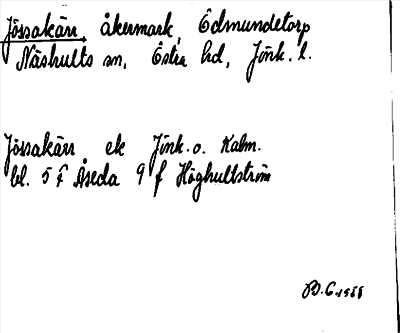 Jössakärr, åkermark, Ödmundetorp
Näshults sn, Östra hd, Jönk. l.
Jössakärr ek Jönk. o. Kalm.
bl. 5 f Åseda 9 f Höghultström